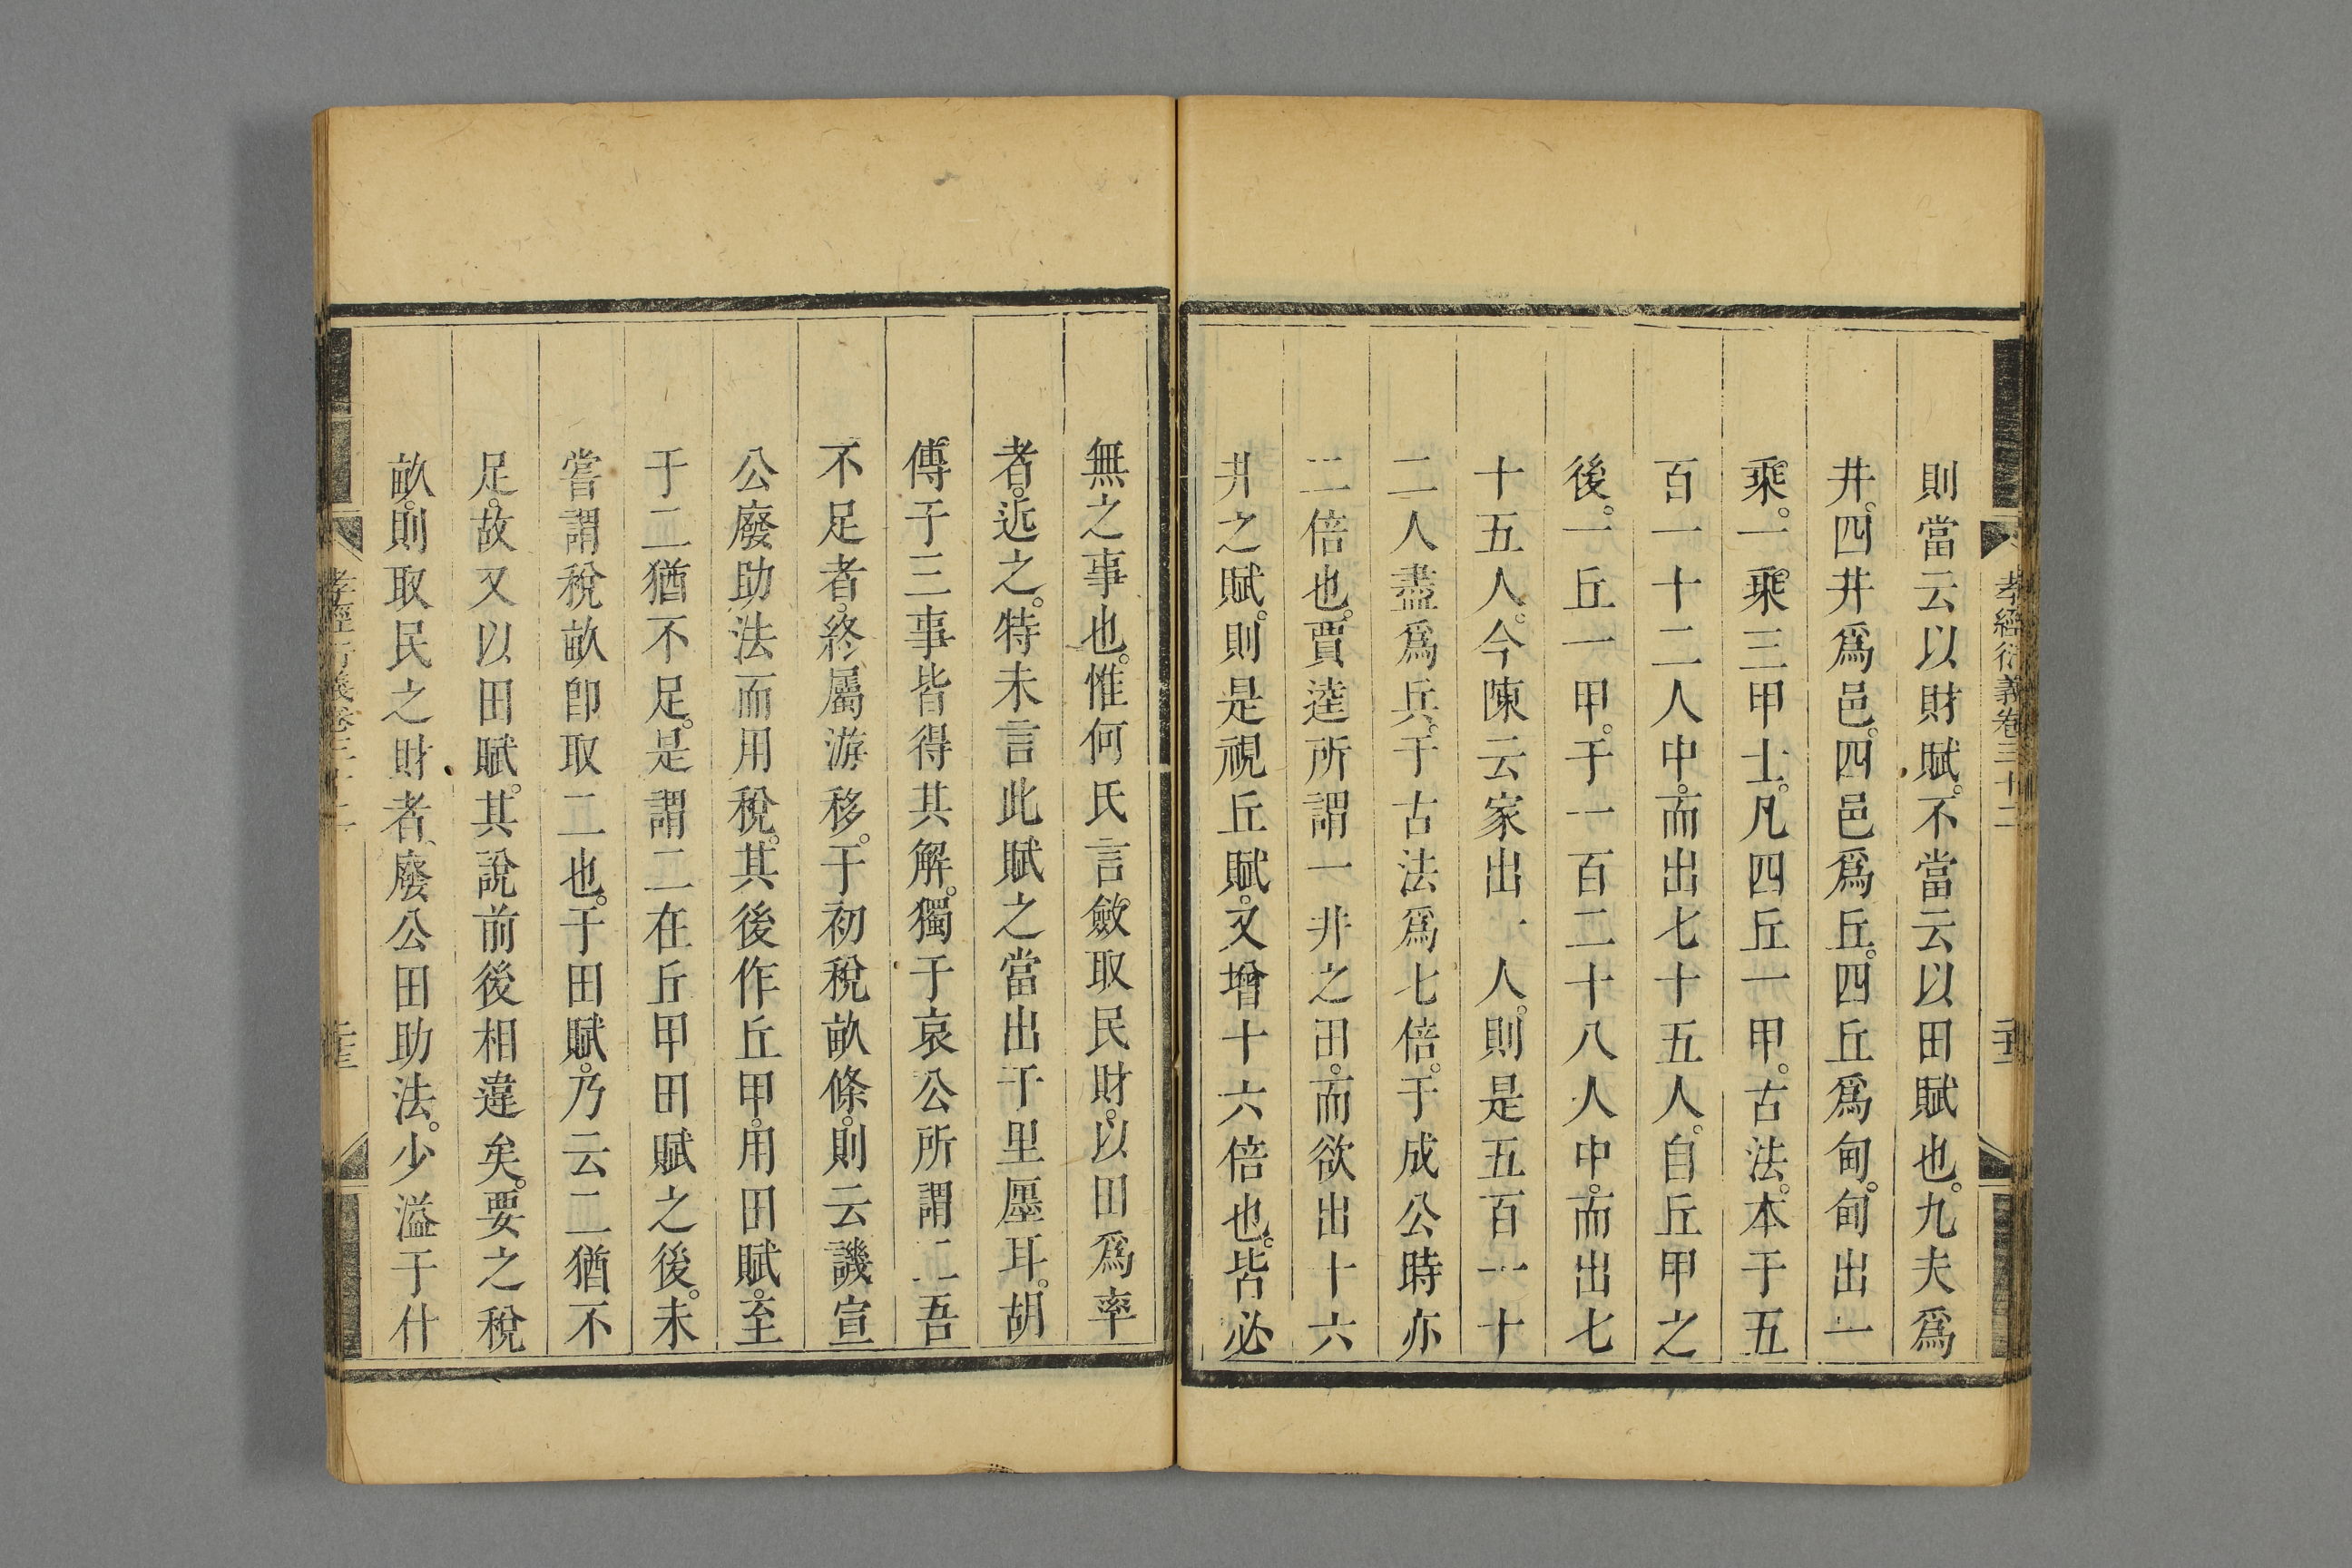 孝經衍義卷三十二
則當云以財賦。不當云以田賦也。九夫爲
井。四井爲邑。四邑爲丘。四丘爲甸。甸出一
乘。一乘三甲士。凡四丘一甲。古法。本于五
百一十二人中。而出七十五人。自丘甲之
後。一丘一甲。于一百二十八人中。而出七
十五人。今陳云家出一人。則是五百一十
二人盡爲兵。于古法爲七倍。于成公時亦
二倍也。賈逵所謂一井之田。而欲出十六
井之賦。則是視丘賦。又增十六倍也。皆必
無之事也。惟何氏言斂取民財。以田爲率
者。近之。特未言此賦之當出于里廛耳。胡
傅于三事皆得其解。獨于哀公所謂二吾
不足者。終屬游移。于初稅畝條。則云譏宣
公廢助法而用稅。其後作丘甲。用田賦。至
于二猶不足。是謂二在丘甲田賦之後。未
嘗謂稅畝卽取二也。于田賦。乃云二猶不
足。故又以田賦。其說前後相違矣。要之稅
畝。則取民之財者、廢公田助法。少溢于什
孝經衍義卷三十二